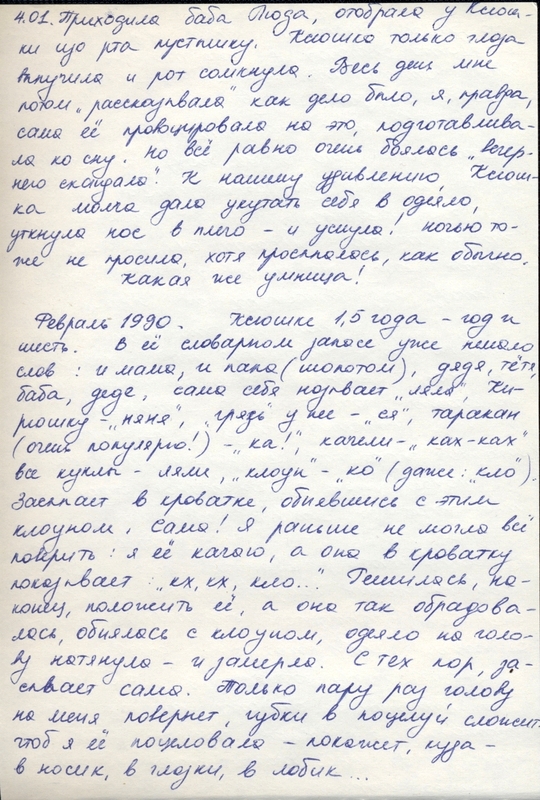 4.01. Приходила баба Люда, отобрала у Ксюш-
ки изо рта пустышку. Ксюшка только глаза
выпучила и рот сомкнула. Весь день мне
потом „рассказывала" как дело было, я, правда,
сама её провоцировала на это, подготавлива-
ла ко сну. Но всё равно очень боялась „вечер-
него скандала". К нашему удивлению, Ксюш-
ка молча дала укутать себя в одеяло,
уткнула нос в плечо - и уснула! Ночью то-
же не просила, хотя просыпалась, как обычно.
Какая же умница!
Февраль 1990. Ксюшке 1,5 года - год и
шесть. В её словарном запасе уже немало
слов: и мама, и папа (шопотом), дядя, тётя,
баба, деде, сама себя называет „ляля", Ки-
рюшку - „няня", „грязь" у нее - „ся", таракан
(очень популярно!) - „ка!", качели - „ках-ках"
все куклы - ляли, „клоун" - „ко" (даже: „кло").
Засыпает в кроватке, обнявшись с этим
клоуном. Сама! Я раньше не могла всё
поверить: я её качаю, а она в кроватку
показывает: „кх, кх, кло..." Решилась, на-
конец, положить её, а она так обрадова-
лась, обнялась с клоуном, одеяло на голо-
ву натянула - и замерла. С тех пор, за-
сыпает сама. Только пару раз голову
на меня повернет, губки в поцелуй сложит
чтоб я её поцеловала - покажет, куда -
в носик, в глазки, в лобик...